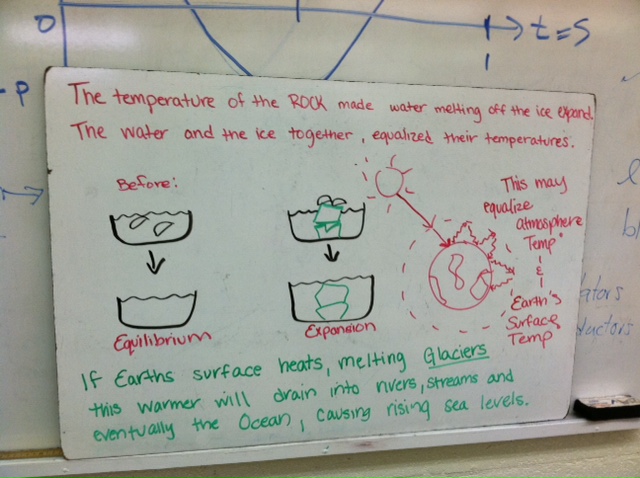 0
t=s
P
The temperature of the ROCK made water melting off the ice expand.
The water and the ice together, equalized their temperatures.
Before:
Equilibrium
Expansion
This may
equalize
atmosphere
Temp
&
Earth's
Surface
Temp
If Earths surface heats, melting Glaciers
this warmer will drain into rivers, streams and
eventually the Ocean, causing rising sea levels.